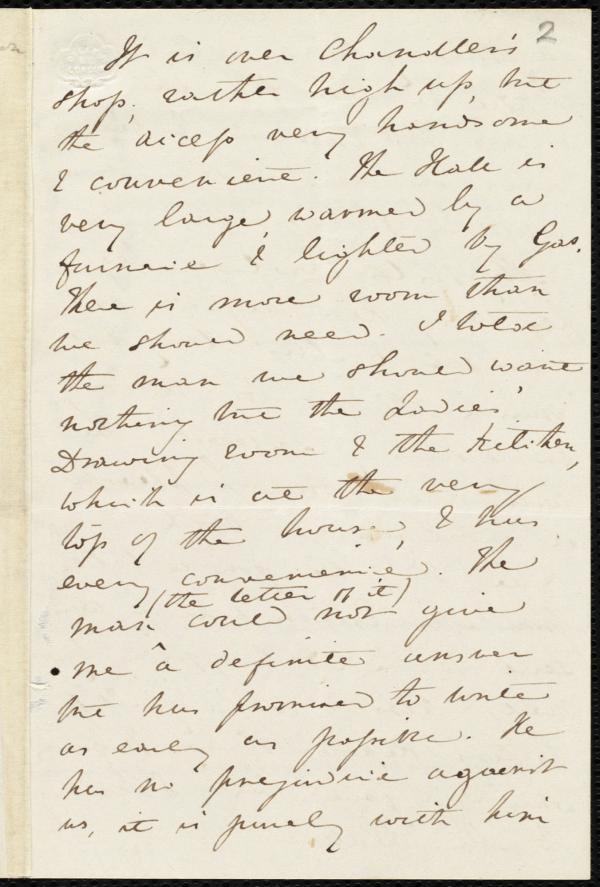 2
It is over Chandler's
shop, rather high up, but
the access very handsome
& convenient. The Hall is
very large, warmed by a
furnace & lighted by Gas.
There is more room than
we should need. I told
the man we should want
nothing but the Ladies'
Drawing room & the kitchen,
which is at the very
top of the house, & has
every convenience. The
(the letter of it)
man could not give
me ^ a definite answer
but has promised to write
as early as possible. He
has no prejudice against
us, it is purely with him